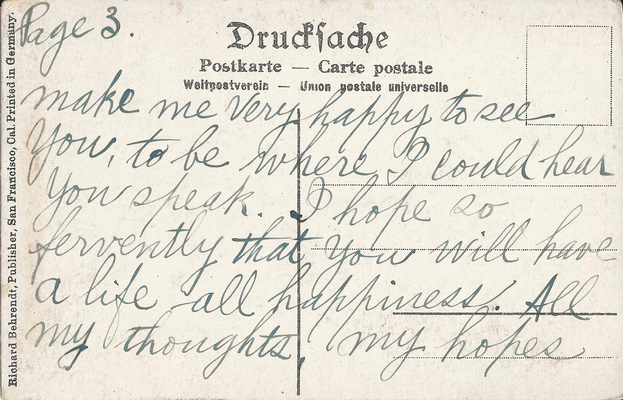 Page 3.
Drucksache
Postkarte — Carte postale
Weltpostverein — Union postale universelle
make me very happy to see
you, to be where I could hear
you speak. I hope so
fervently that you will have
a life all happiness. All
my thoughts, my hopes
Richard Behrendt, Publisher, San Francisco, Cal. Printed in Germany.